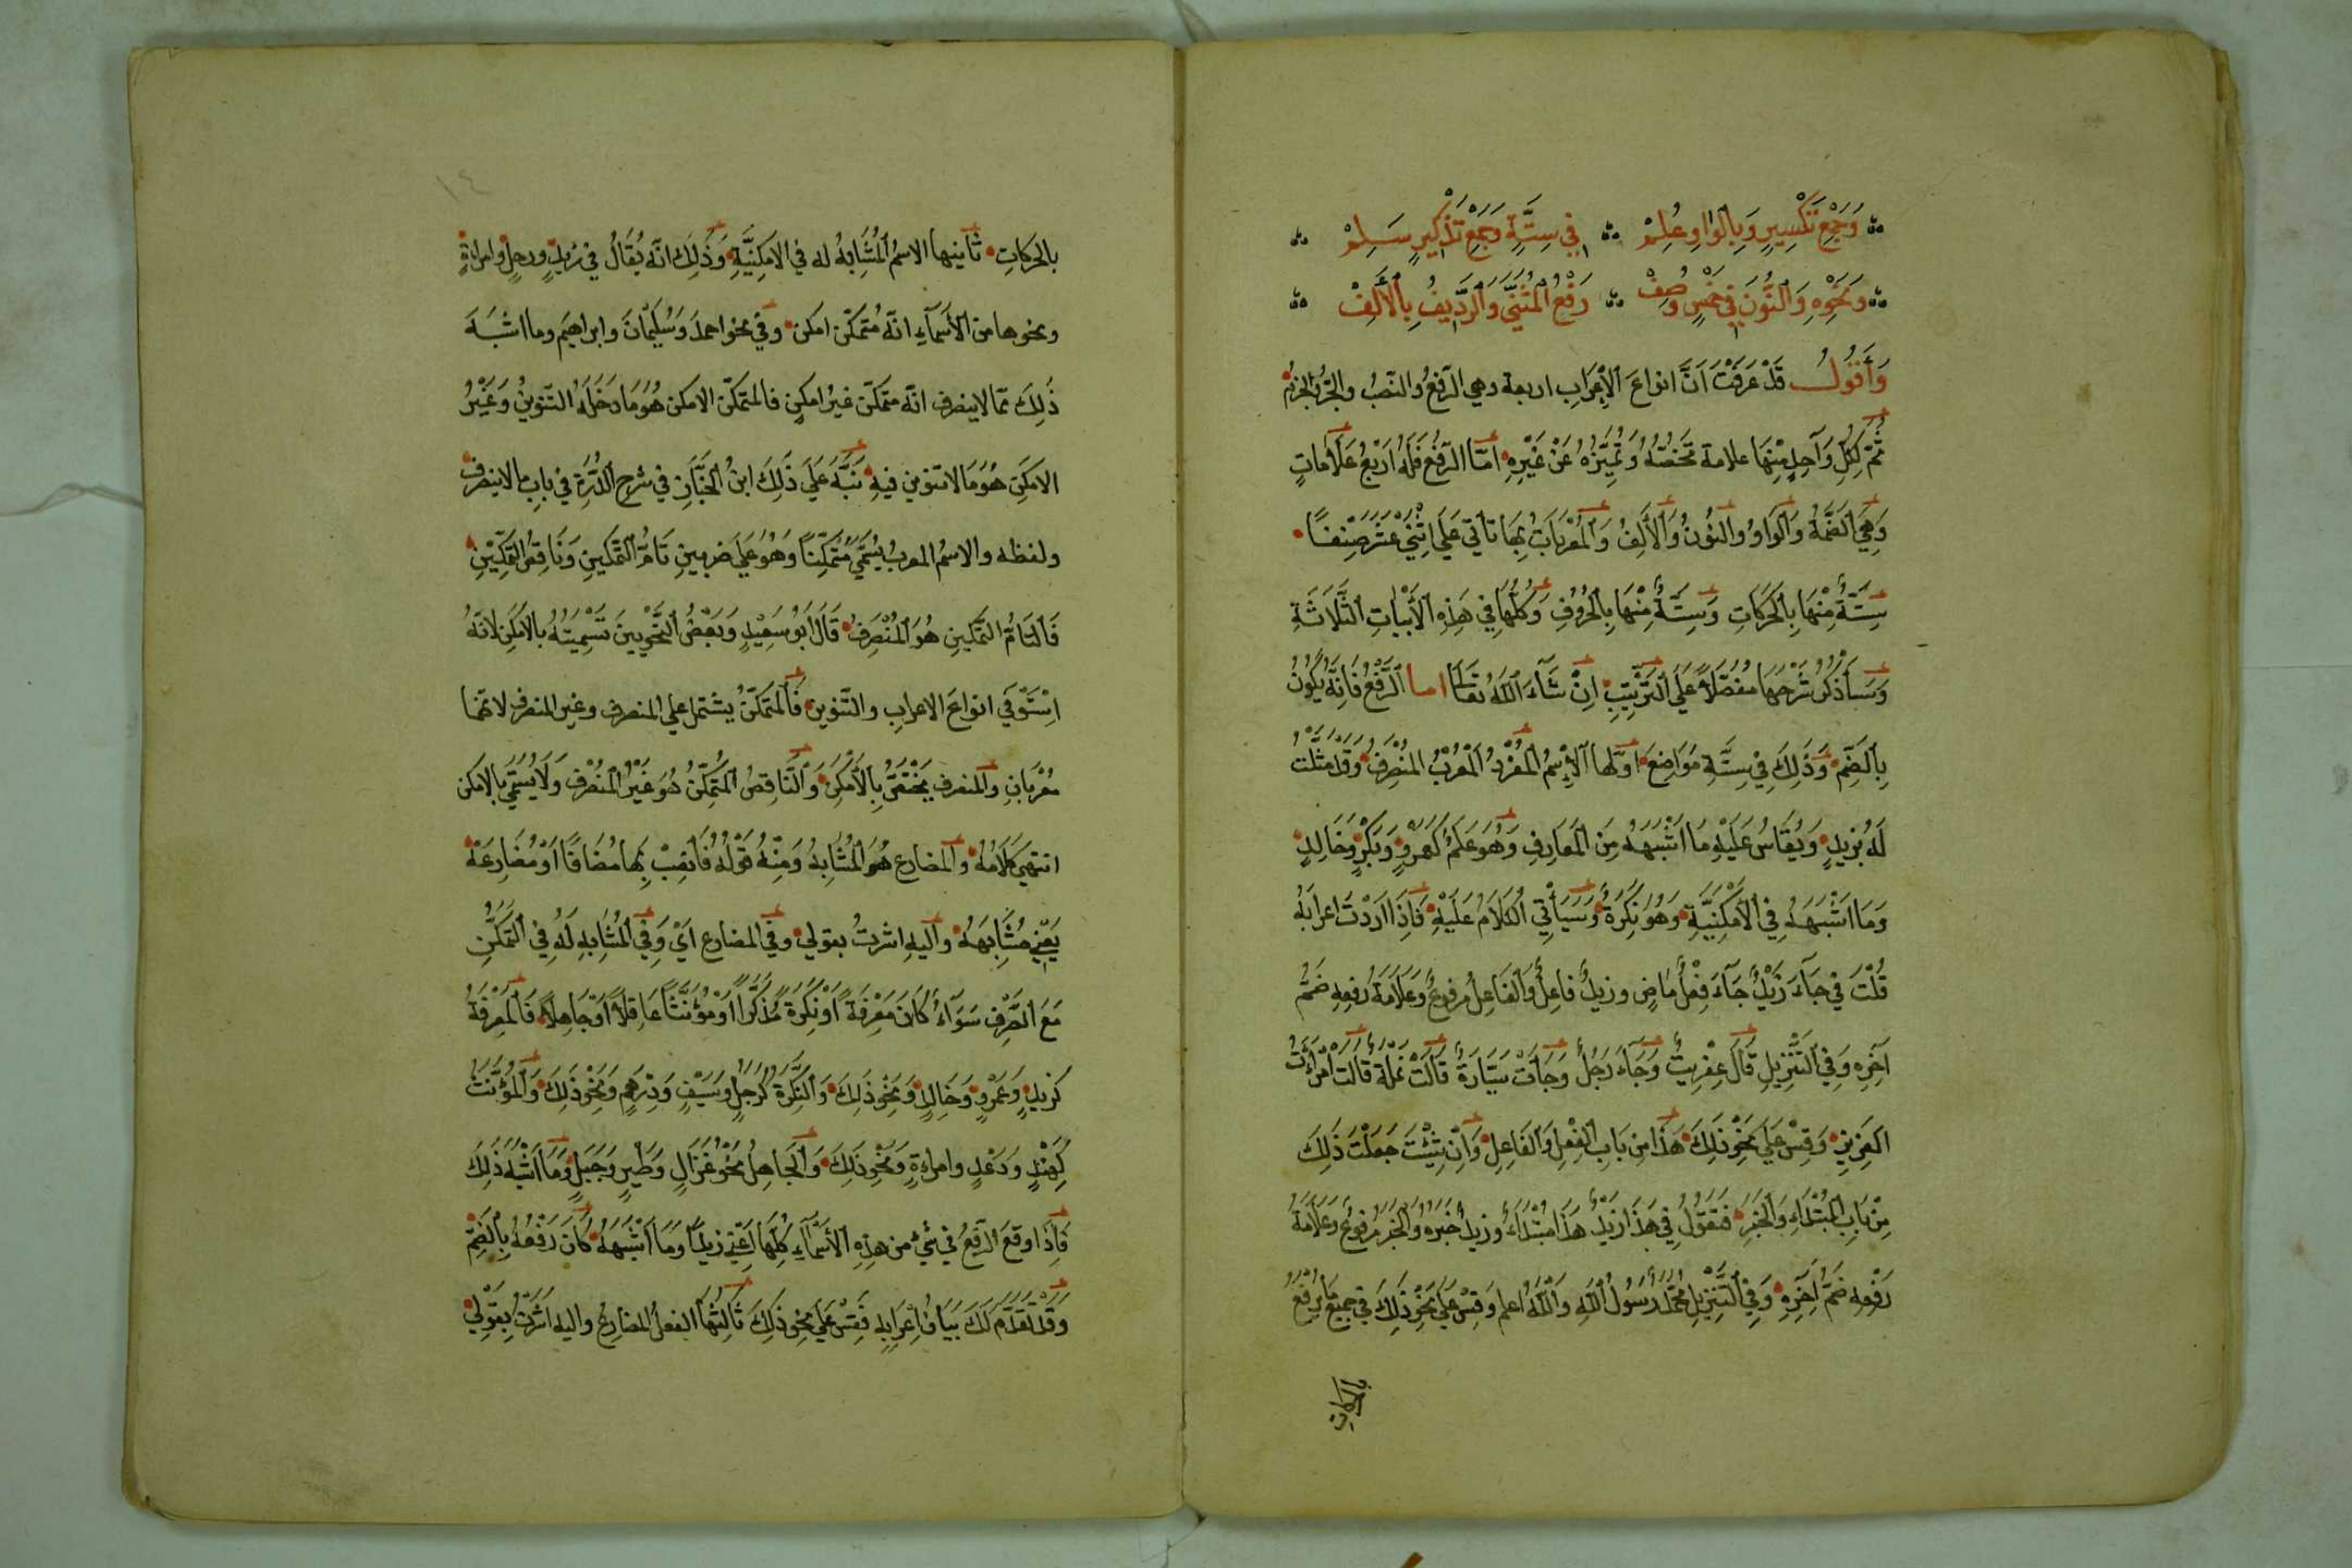 وَجَمْعِ تَكْسِيرٍ وَبِالْوَاوِ عُلِمْ في سِتَّةٍ وَجَمْعِ تَذْكِيرٍ سَلِمْ
وَنَحْوِهِ وَالنُّونَ فِي خَمْسٍ وُصِفْ رَفْعُ الْمُثَنَّى وَالرَّدِيفُ بِالْأَلِفْ
وَأَقُولُ قَدْ عَرَفْتَ اَنَّ انواعَ الْإِعْرَابِ اربعة وهي الرّفعُ والنّصبُ والجرُّ والجزمُ
ثُمَّ لِكُلِّ وَاحِدٍ مِنْهَا علامة تَخُصُّهُ وَتُمَيِّزُهُ عَنْ غَيْرِهِ امّا الرّفْعُ فَلَهُ اَرْبَعُ عَلَامَاتٍ
وَهِيَ الضَّمَّةُ وَالْوَاوُ والنُّونُ وَالْأَلِفُ وَالْمُعْرَبَاتُ بِهَا تاتي عَلَى اِثْنَيْ عَشَرَ صِنْفًا
سِتَّةٌ مِنْهَا بِالْحَرَكَاتِ وَسِتَّةٌ مِنْهَا بِالْحُرُوفِ وَكُلُّهَا فِي هَذِهِ الْأَبْيَاتِ الثَّلَاثَةِ
وَسَأَذْكُرُ شَرْحَهَا مُفَصَّلًا عَلَى التَّرْتِيبِ اِنْ شَآءَ اللّٰهُ تَعَالَى اما الرَّفْعُ فَاِنَّهُ يَكُونُ
بِالضَّمِّ وَذَلِكَ فِي سِتَّةِ مَوَاضِعَ اوّلها الْاِسْمُ الْمُفْرَدُ الْمُعْرَبُ الْمُنْصَرِفُ وَقَدْ مَثَّلْتُ
لَهُ بِزَيْدٍ وَيُقَاسُ عَلَيْهِ مَا اَشْبَهَهُ مِنَ الْمَعَارِفِ وَهُوَ عَلَمٌ كَعَمْرٍو وَبَكْرٍ وَخَالِدٍ
وَمَا اَشْبَهَهُ فِي الْأَمْكَنِيَّةِ وَهُوَ نَكِرَةٌ وَسَيَأْتِي الْكَلَامُ عَلَيْهِ فَاِذَا اَرَدْتَ اعرابَهُ
قُلْتَ فِي جَآءَ زَيْدٌ جَآءَ فِعْلٌ مَاضٍ وزيدٌ فاعِلٌ وَالْفَاعِلُ مرفوعٌ وَعَلَامَةُ رفعِهِ ضَمُّ
آخِرِهِ وَفِي التَّنْزِيلِ قَالَ عِفْرِيتٌ وَجَآءَ رَجُلٌ وَجَآءَتْ سَيَّارَةٌ قَالَتْ نَمْلَةٌ قَالَتِ امْرَأَتُ
الْعَزِيزِ وَقِسْ عَلَى نَحْوِ ذَلِكَ هَذَا مِن بَابِ الْفِعْلِ وَالْفَاعِلِ وَاِنْ شِئْتَ جَعَلْتَ ذَلِكَ
مِنْ بَابِ الْمُبْتَدَاءِ وَالْخَبَرِ فَتَقُولُ فِي هَذَا زَيْدٌ هَذَا مُبْتَدَاءٌ وزيدٌ خَبَرُهُ وَالْخَبَرُ مرفوعٌ وَعَلَامَةُ
رَفْعِهِ ضَمُّ آخِرِهِ وَفِي التَّنْزِيلِ مُحَمَّدٌ رَسُولُ اللّٰهِ وَاللّٰهُ اعلم وَقِسْ عَلَى نَحْوِ ذَلِكَ فِي جميع مَا يُرْفَعُ
بالحركات
١٤
بالحركاتِ ثَانِيها الاسمُ الْمُشَابِهُ له في الامكنيَّةِ وَذَلِكَ انّه يُقَالُ في زيدٍ ورجلٍ وامراةٍ
ونحوها من الْأَسْمَآءِ انّهُ مُتَمَكِّن امكن وفي نحو احمدَ وَسُلَيْمَانَ وابراهيم وما اشبَهَ
ذَلِكَ ممّا لا ينصرف انّه متمكّن غيرُ امكنٍ فالمتمكّن الامكن هُوَ مَا دَخَلَهُ التّنوينُ وَغَيْرُ
الامكنِ هُوَ مَا لا تنوين فيهِ نَبَّهَ عَلَى ذَلِكَ ابنُ الْخَبَّازِ في شرحِ الدُّرَّةِ في بابِ ما لا ينصرف
ولفظه والاسمُ المعربُ يُسَمَّى مُتَمَكِّنًا وَهُوَ عَلَى ضربينِ تَامِّ التَّمْكِينِ وَنَاقِصِ التَّمْكِينِ
فَالتَامُّ التَّمكينِ هُوَ الْمُنْصَرِفُ قَالَ اَبُو سَعِيْدٍ وَبَعْضُ النَّحْوِيِينَ تَسْمِيَتُهُ بالامْكَنِ لانّهُ
اِسْتَوْفَى انواعَ الاعرابِ والتّنوين فَالْمُتَمَكِّنُ يشتمل على المنصرف وغير المنصرف لانّهما
مُعْرَبَانِ والمنصرف يَخْتَصُّ بِالْأَمْكَنِ وَالنَّاقِصُ المُتَمَكِّنُ هُوَ غَيْرُ الْمُنْصَرِفِ وَلَا يُسَمَّى بالامكن
انتهى كَلَامُهُ وَالمضارع هُوَ الْمُشَابِهُ وَمِنْهُ قَوْلُهُ فَانْصِبْ بِهَا مُضَافًا اَوْ مُضَارِعَهْ
يَعْنِي مُشَابِهَهُ وَاليهِ اشرتُ بقولي وفي المضارع اَيْ وَفِي الْمُشَابِهِ لَهُ فِي التَّمَكُّنِ
مَعَ الصَّرْفِ سَوَآءٌ كَانَ مَعْرِفَةً اَوْ نَكِرَةً مُذَكَّرًا اَوْ مُؤَنَّثًا عَاقِلًا اَوْ جَاهِلًا فَالْمَعْرِفَةُ
كزيدٍ وَعَمْرٍو وَخَالِدٍ وَنَحْوِ ذَلِكَ وَالنَّكِرَةُ كَرَجُلٍ وَسَيْفٍ وَدِرْهَمٍ وَنَحْوِ ذَلِكَ وَالْمُؤَنَّثُ
كَهِنْدٍ وَدَعْدٍ وامراءةٍ وَنَحْوِ ذَلِكَ وَالْجَاهِلُ نَحْوُ غَزَالٍ وَطَيْرٍ وَجَبَلٍ وَمَا اَشْبَهَ ذَلِكَ
فَاِذَا وَقَعَ الرَّفْعُ في شيْءٍ من هذِهِ الْأَسْمَآءِ كُلِّهَا اَعْنِي زيدًا وَمَا اَشْبَهَهُ كَانَ رَفْعُهُ بِالضَّمِّ
وَقَدْ تَقَدَّمَ لَكَ بَيَانُ اِعْرَابِهِ فَقِسْ عَلَى نحو ذَلِكَ ثَالِثُهَا الفعلُ المضارعُ واليه اَشَرْتُ بِقَوْلِي